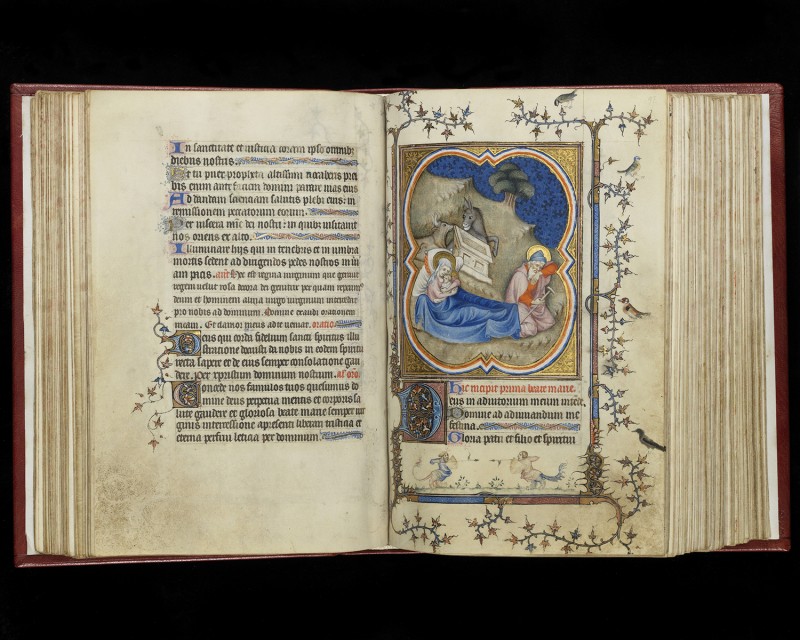 In sanctitate et iusticia coram ipso omnib;
diebus nostris.
Et tu puer propheta altissimi uocaberis prei
bis enim ante faciem domini parare uias eius
Ad dandam scienciam salutis plebi eius: in
remissionem peccatorum eorum.
Per uiscera mie dei nostri: in quib; uisitauit
nos oriens ex alto.
Illuminare hijs qui in tenebris et in umbra
mortis sedent ad dirigendos pedes nostros in ui
am pacis. ant Hec est regina uirginum que genuit
regem uelut rosa decora dei genitrix per quam reperim
deum et hominem alma uirgo uirginum intercede
pro nobis ad dominum. Domine exaudi orationem
meam. Et clamor meus ad te ueniat. oratio
Deus qui corda fidelium sancti spiritus illu
stratione docuisti da nobis in eodem spiritu
recta sapere et de eius semper consolatione gau
dere. per xpristum dominum nostrum. al' oro.
Concede nos famulos tuos quesumus do
mine deus perpetua mentis et corporis sa
lute gaudere et gloriosa beate marie semper uir
ginis intercessione a presenti liberari tristicia et
eterna perfrui leticia per dominum.
Hic incipit prima beate marie.
Deus in adiutorium meum intēde.
Domine ad adiuuandum me
festina.
Gloria patri et filio et spiritui